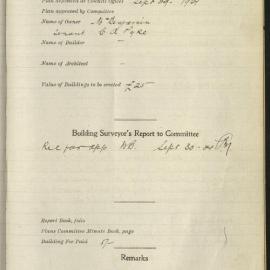 Plan deposited at Council Offices Sept 29. 1904
Plan approved by Committee
Name of Owner Mr Benjamin
tenant C A Pyke
Name of Builder —
Name of Architect —
Value of Buildings to be erected £25
Building Surveyor's Report to Committee
Rec for app Sept 30
Report Book, folio
Plans Committee Minute Book, page
Building Fee Paid 5/-
Remarks